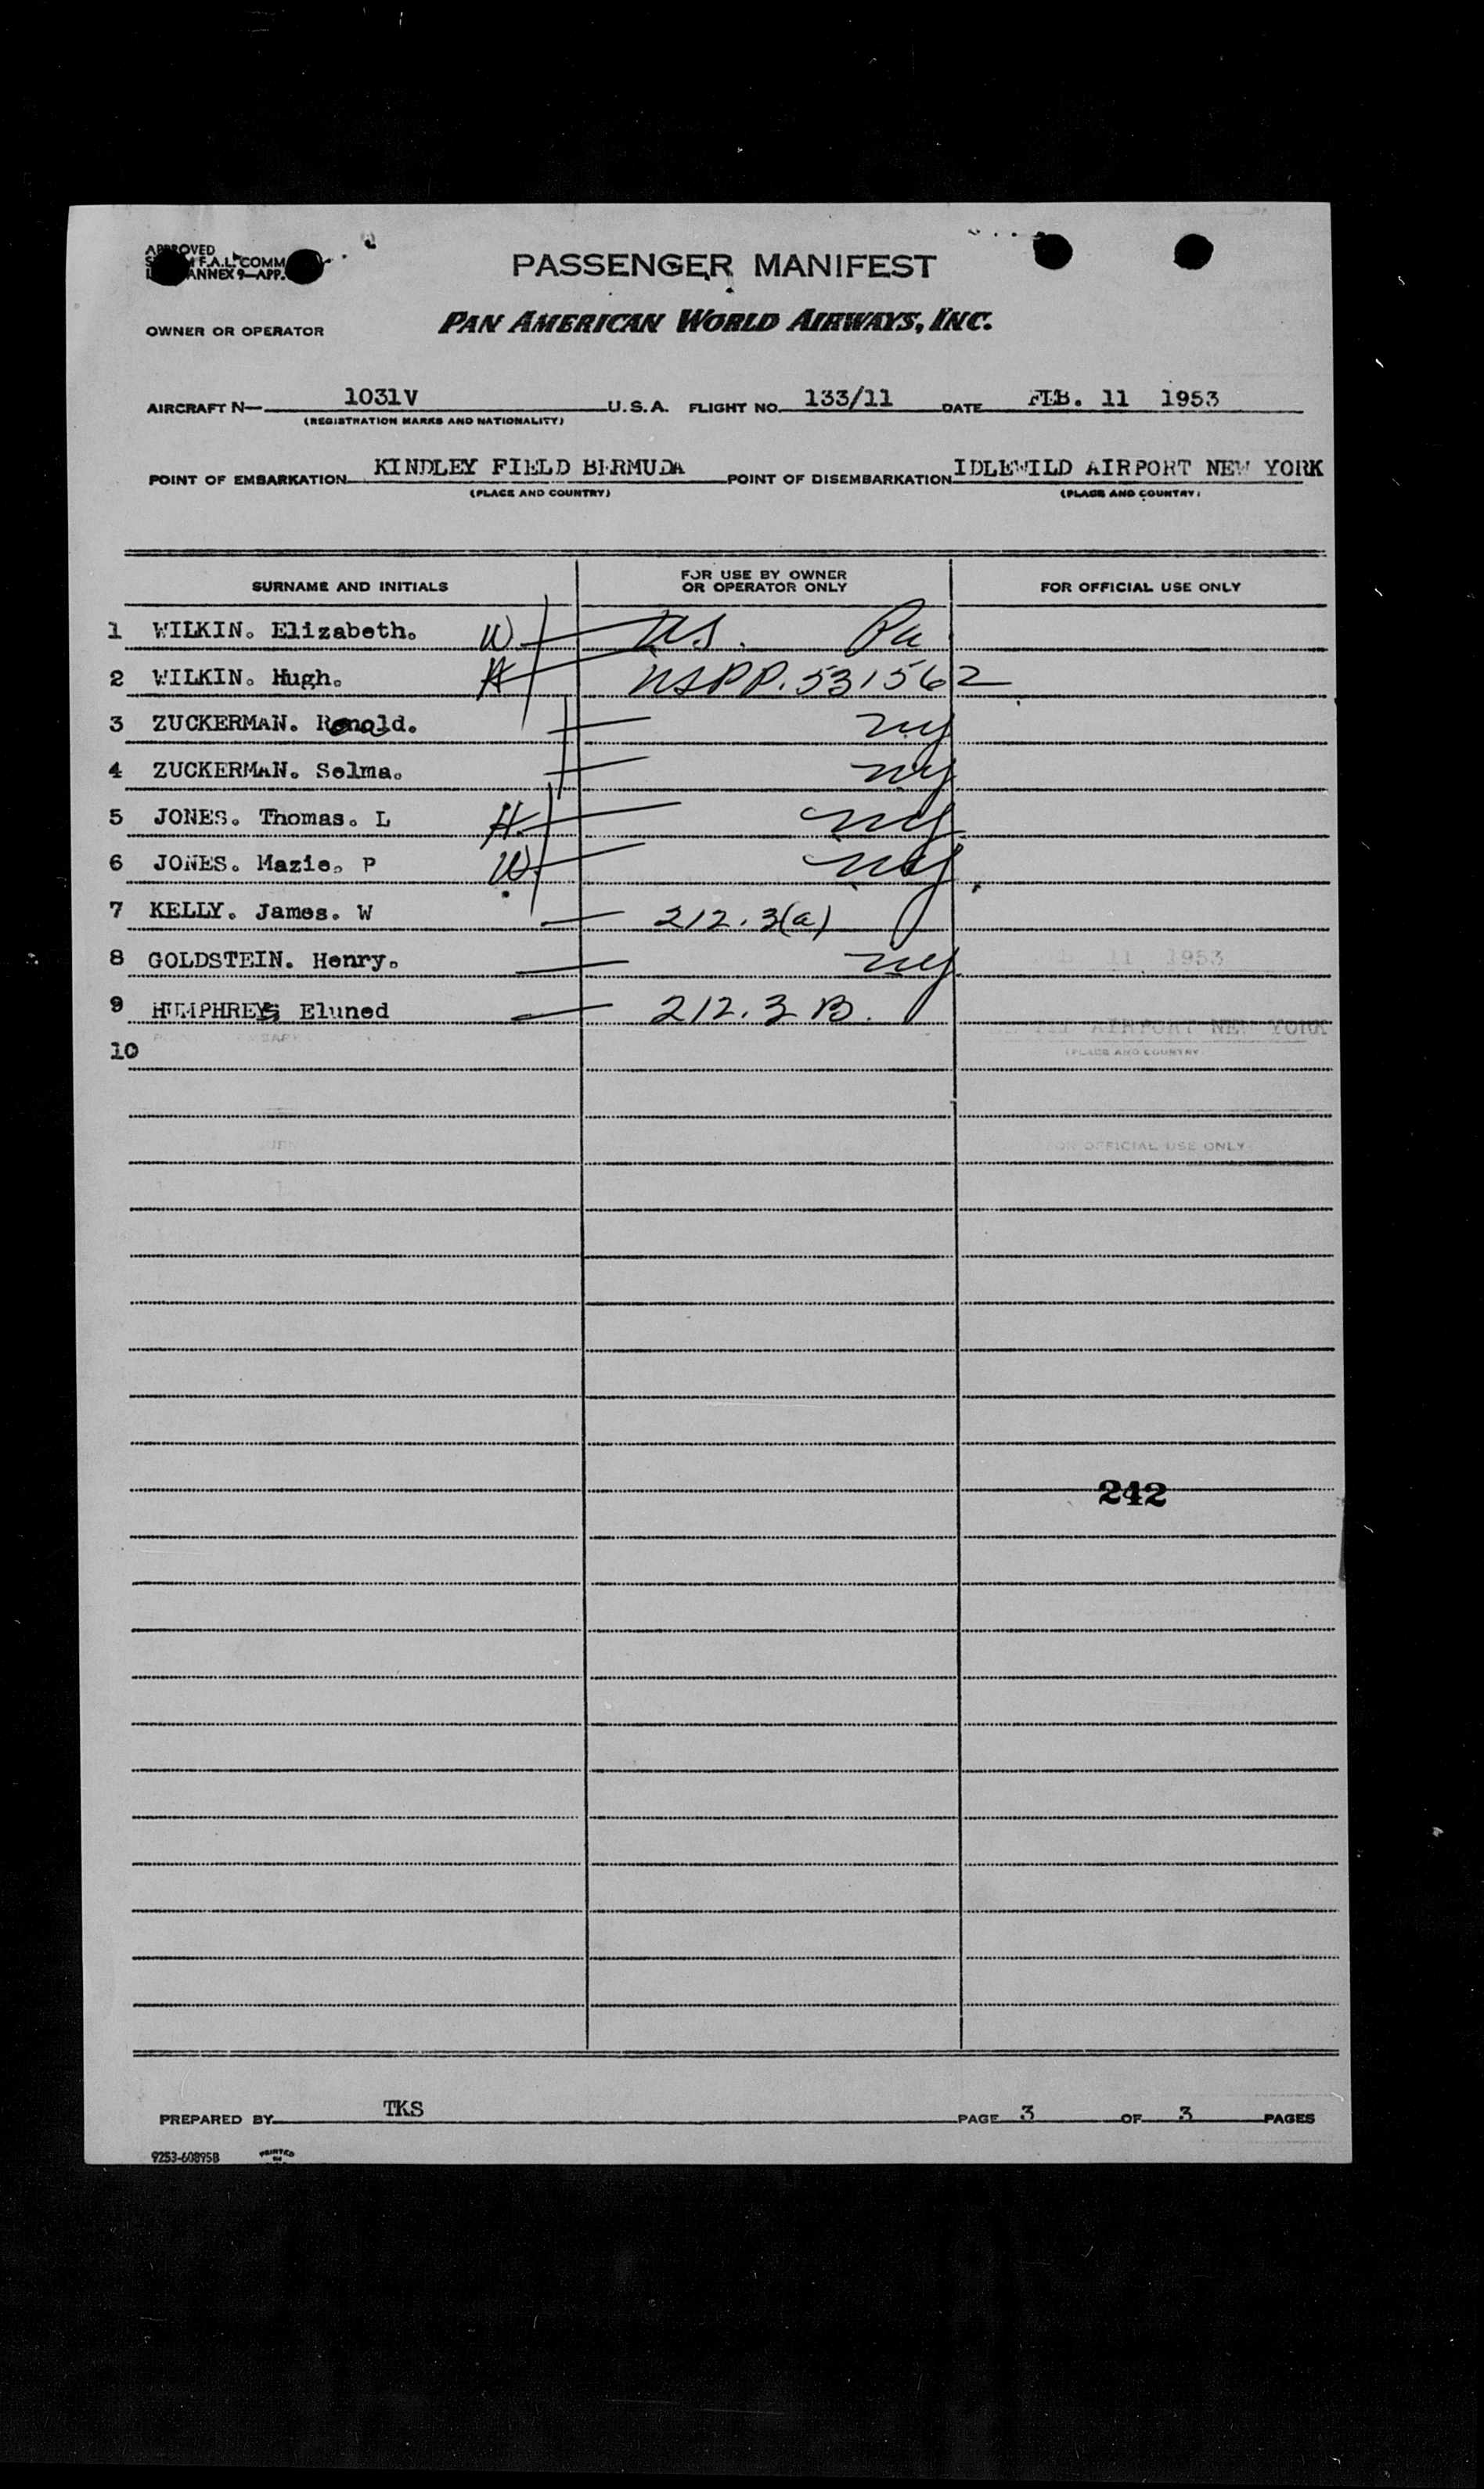 APPROVED
F.A.L. COMM
ANNEX 9—APP.
PASSENGER MANIFEST
OWNER OR OPERATOR PAN AMERICAN WORLD AIRWAYS, INC.
AIRCRAFT N— 1031V U.S.A. FLIGHT NO. 133/11 DATE FEB. 11 1953
(REGISTRATION MARKS AND NATIONALITY)
POINT OF EMBARKATION KINDLEY FIELD BERMUDA POINT OF DISEMBARKATION IDLEWILD AIRPORT NEW YORK
(PLACE AND COUNTRY) (PLACE AND COUNTRY)
SURNAME AND INITIALS FOR USE BY OWNER OR OPERATOR ONLY FOR OFFICIAL USE ONLY
1 WILKIN. Elizabeth. W US. Pa
2 WILKIN. Hugh. H USPP. 531562
3 ZUCKERMAN. Ronald. ny
4 ZUCKERMAN. Selma. ny
5 JONES. Thomas. L H ny
6 JONES. Mazie. P W ny
7 KELLY. James. W 212.3(a)
8 GOLDSTEIN. Henry. ny
9 HUMPHREYS Eluned 212.3 B.
10
242
PREPARED BY TKS PAGE 3 OF 3 PAGES
9253-60895B PRINTED